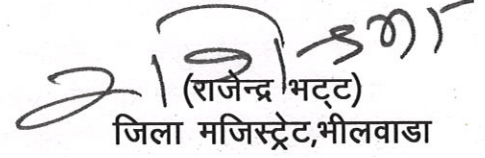 (राजेन्द्र भट्ट)
जिला मजिस्ट्रेट,भीलवाडा